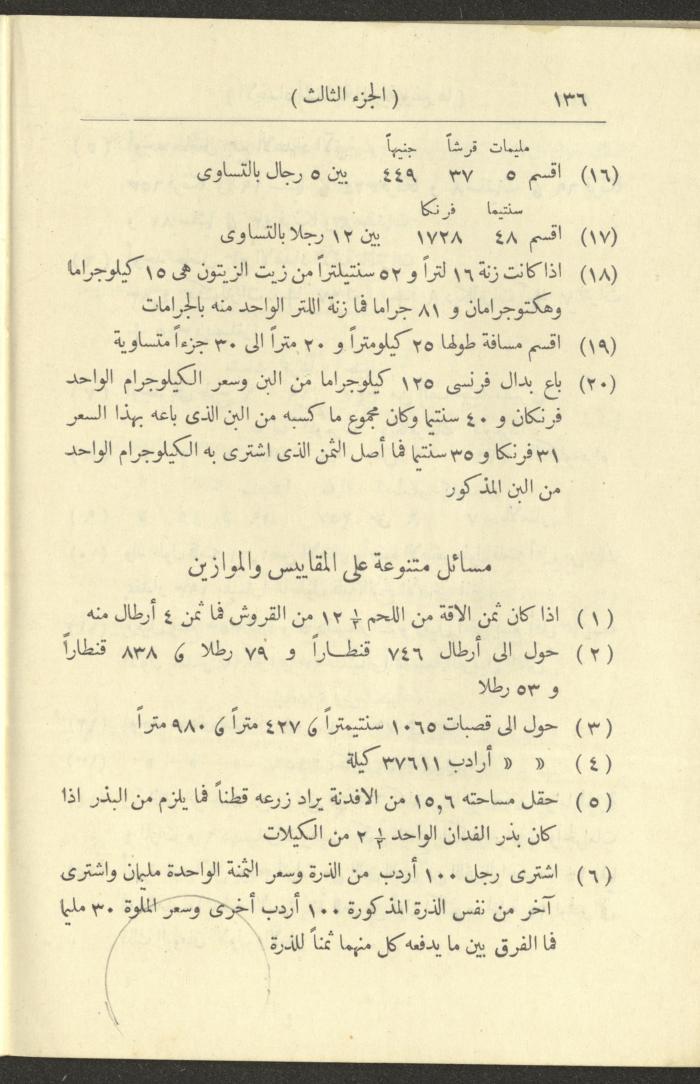 ١٣٦ ( الجزء الثالث )
مليمات قرشاً جنيهاً
(١٦) اقسم ٥ ٣٧ ٤٤٩ بين ٥ رجال بالتساوى
سنتيما فرنكا
(١٧) اقسم ٤٨ ١٧٢٨ بين ١٢ رجلا بالتساوى
(١٨) اذا كانت زنة ١٦ لتراً و ٥٢ سنتيلتراً من زيت الزيتون هى ١٥ كيلوجراما
وهكتوجرامان و ٨١ جراما فما زنة اللتر الواحد منه بالجرامات
(١٩) اقسم مسافة طولها ٢٥ كيلومتراً و ٢٠ متراً الى ٣٠ جزءاً متساوية
(٢٠) باع بدال فرنسى ١٢٥ كيلوجراما من البن وسعر الكيلوجرام الواحد
فرنكان و ٤٠ سنتيما وكان مجموع ما كسبه من البن الذى باعه بهذا السعر
٣١ فرنكا و ٣٥ سنتيما فما أصل الثمن الذى اشترى به الكيلوجرام الواحد
من البن المذكور
مسائل متنوعة على المقاييس والموازين
(١) اذا كان ثمن الاقة من اللحم ١/٢ ١٢ من القروش فما ثمن ٤ أرطال منه
(٢) حول الى أرطال ٧٤٦ قنطــاراً و ٧٩ رطلا ٩ ٨٣٨ قنطاراً
و ٥٣ رطلا
(٣) حول الى قصبات ١٠٦٥ سنتيمتراً ٩ ٤٢٧ متراً ٩ ٩٨٠ متراً
(٤) » » أرادب ٣٧٦١١ كيلة
(٥) حقل مساحته ١٥,٦ من الافدنة يراد زرعه قطناً فما يلزم من البذر اذا
كان بذر الفدان الواحد ١/٢ ٢ من الكيلات
(٦) اشترى رجل ١٠٠ أردب من الذرة وسعر الثمنة الواحدة مليمان واشترى
آخر من نفس الذرة المذكورة ١٠٠ أردب أخرى وسعر الملوة ٣٠ مليما
فما الفرق بين ما يدفعه كل منهما ثمناً للذرة